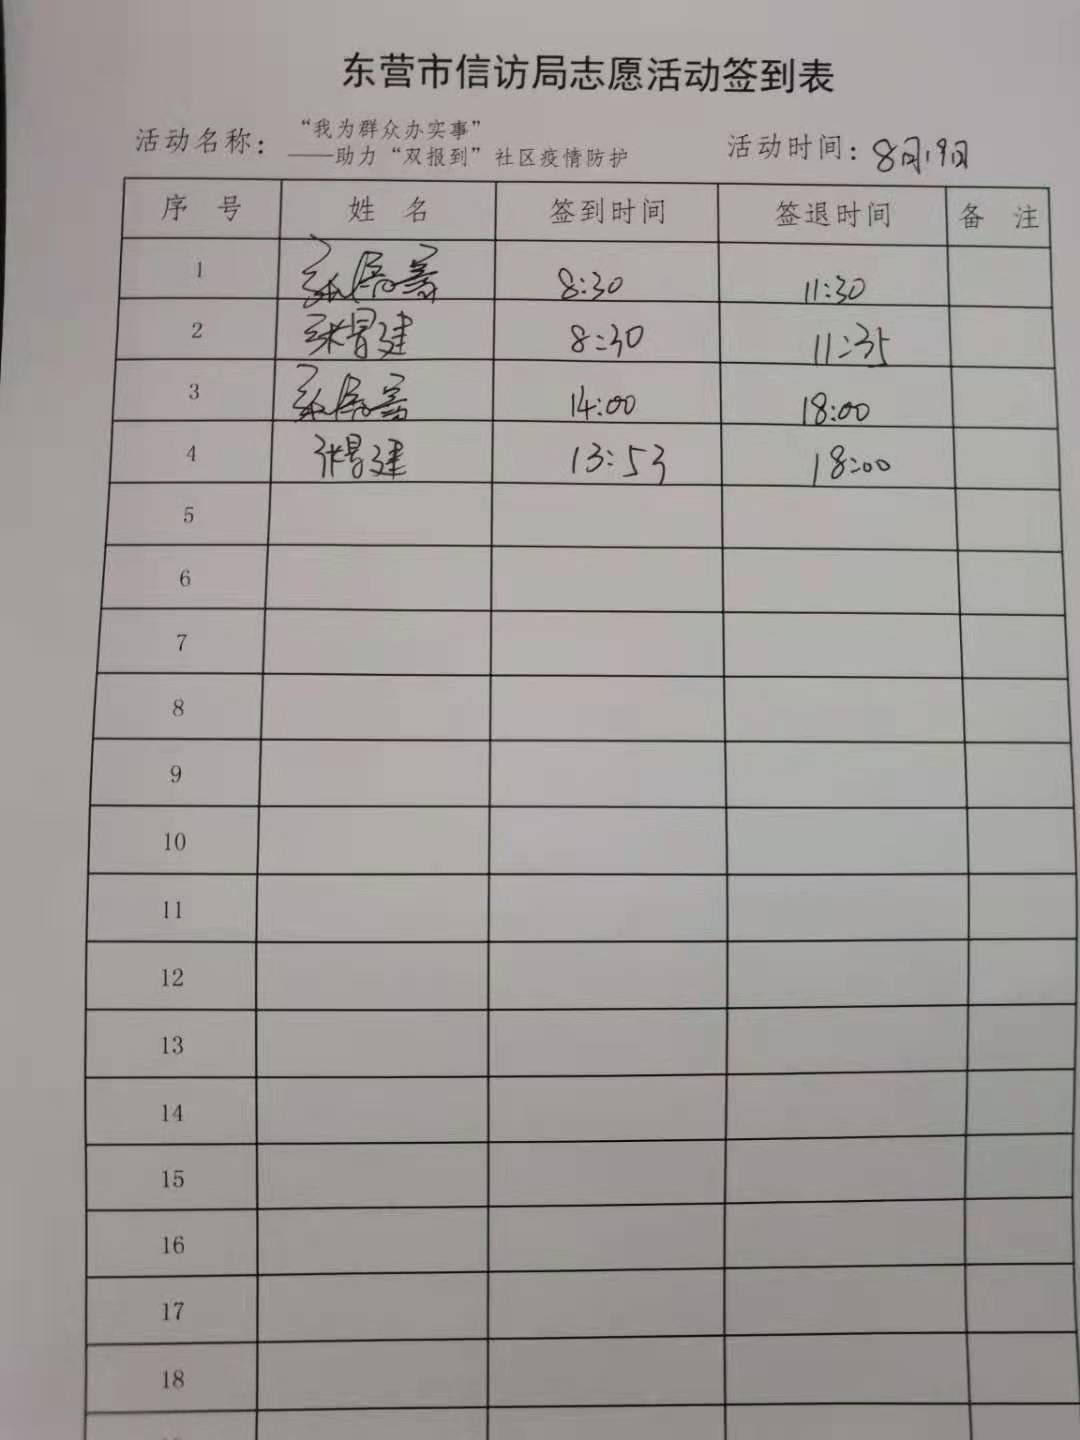 东营市信访局志愿活动签到表
活动名称：“我为群众办实事”
——助力“双报到”社区疫情防护
活动时间：8月19日
序号 姓名 签到时间 签退时间 备注
1 8:30 11:30
2 张建 8:30 11:35
3 14:00 18:00
4 张建 13:53 18:00
5
6
7
8
9
10
11
12
13
14
15
16
17
18